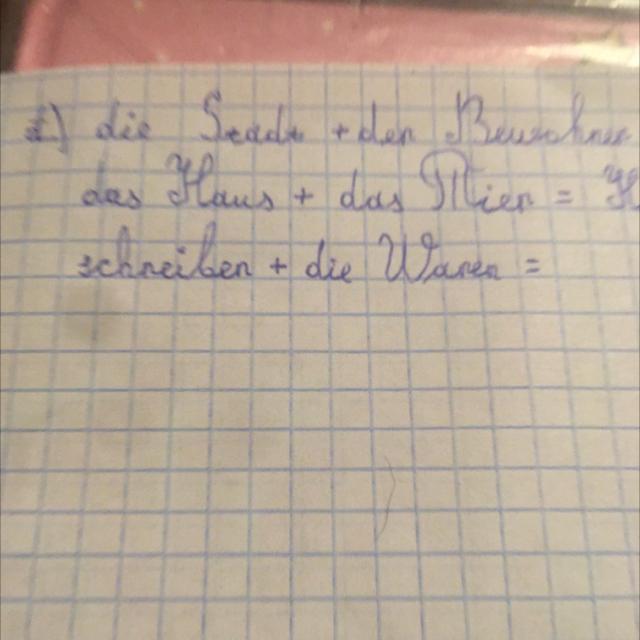 2) die Stadt + der Bewohner
das Haus + das Tier = H
schreiben + die Waren =